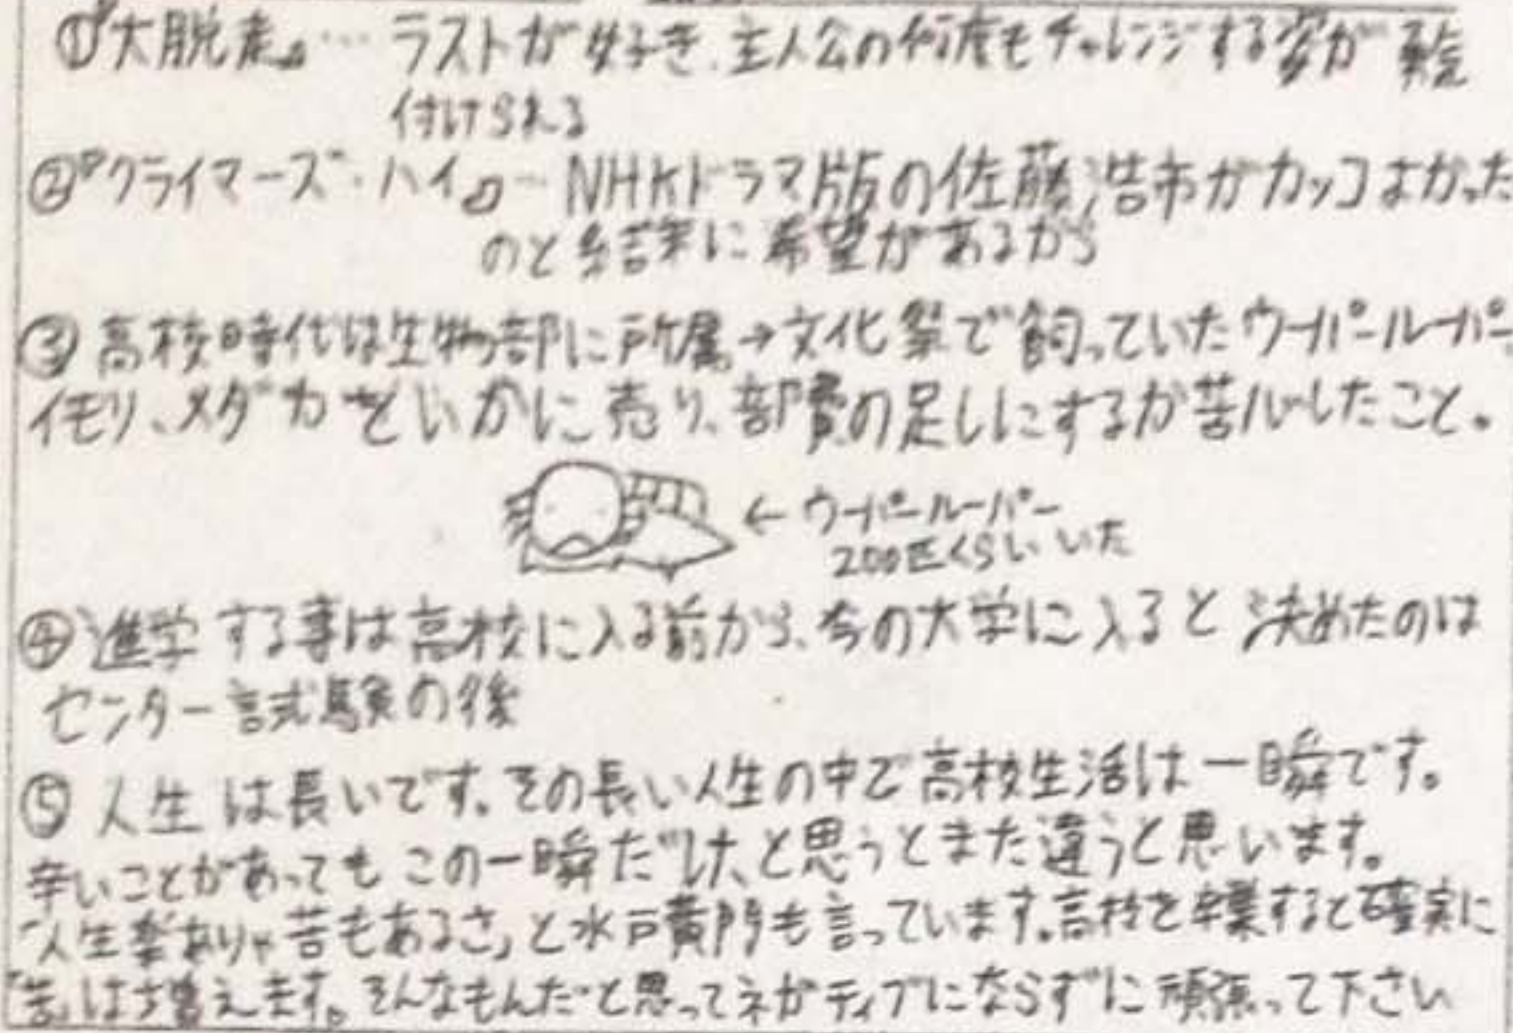 ①『大脱走』… ラストが好き、主人公の何度もチャレンジする姿が勇気
付けられる
②『クライマーズ・ハイ』… NHKドラマ版の佐藤浩市がカッコよかった
のと結末に希望があるから
③ 高校時代は生物部に所属→文化祭で飼っていたウーパールーパー、
イモリ、メダカをいかに売り、部費の足しにするか苦心したこと。
← ウーパールーパー
200匹くらいいた
④ 進学する事は高校に入る前から、今の大学に入ると決めたのは
センター試験の後
⑤ 人生は長いです。その長い人生の中で高校生活は一瞬です。
辛いことがあってもこの一瞬だけ、と思うとまた違うと思います。
「人生楽ありゃ苦もあるさ」と水戸黄門も言っています。高校を卒業すると確実に
「苦」は増えます。そんなもんだと思ってネガティブにならずに頑張って下さい